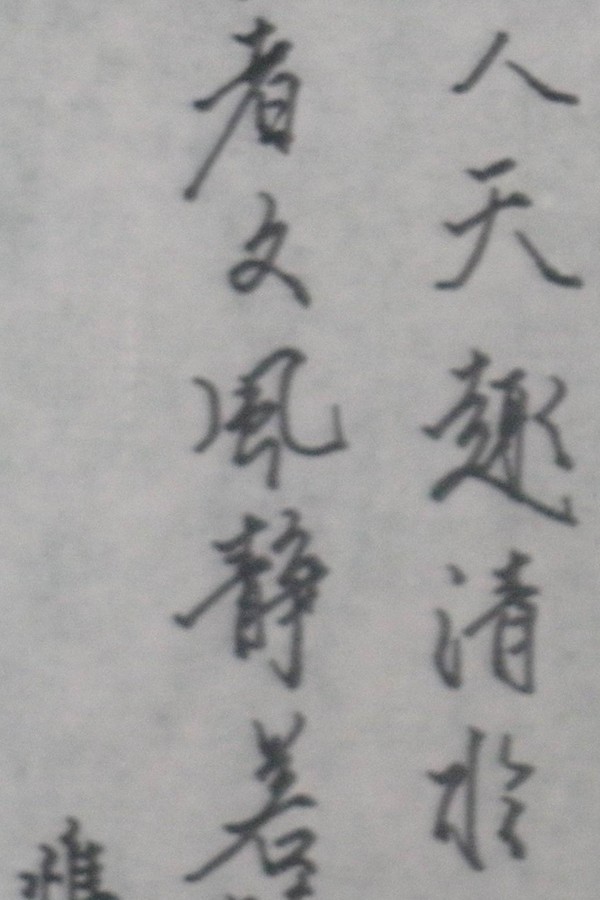 人天趣清於
者文風静若